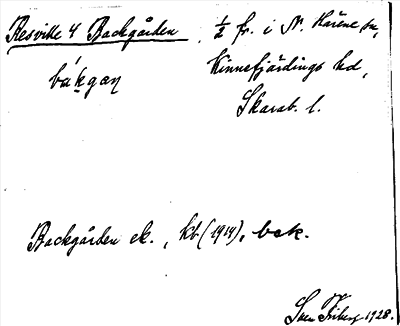 Resville 4 Backgården ½ fr. i N. Härene sn,
Kinnefjärdings hd,
bákgaṇ
Skarab. l.
Backgården ek., kb (1914), bok.
Sven Friberg 1928.